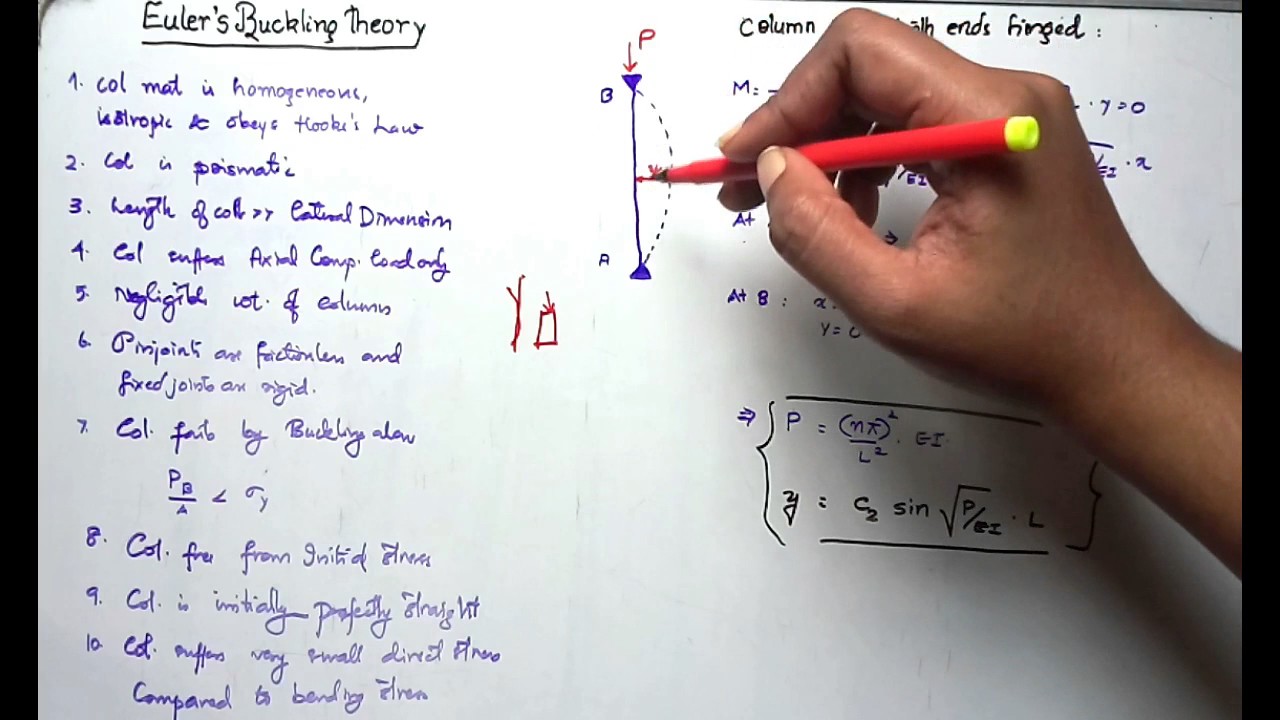 Euler's Buckling Theory
1. Col mat is homogeneous,
isotropic & obeys Hooke's Law
2. Col is prismatic
3. Length of col >> lateral Dimension
4. Col suffers Axial Comp. load only
5. Negligible wt. of column
6. Pinjoints are frictionless and
fixed joints are rigid.
7. Col. fails by Buckling alone
P_B/A < σy
8. Col. free from Initial stress
9. Col. is initially perfectly straight
10. Col. suffers very small direct stress
Compared to bending stress
P
B
A
Column both ends hinged :
M = - · y = 0
/EI /EI · x
At
At B : x
y = 0
⇒ P = (nπ)²/L² · EI
y = C₂ sin √P/EI · L